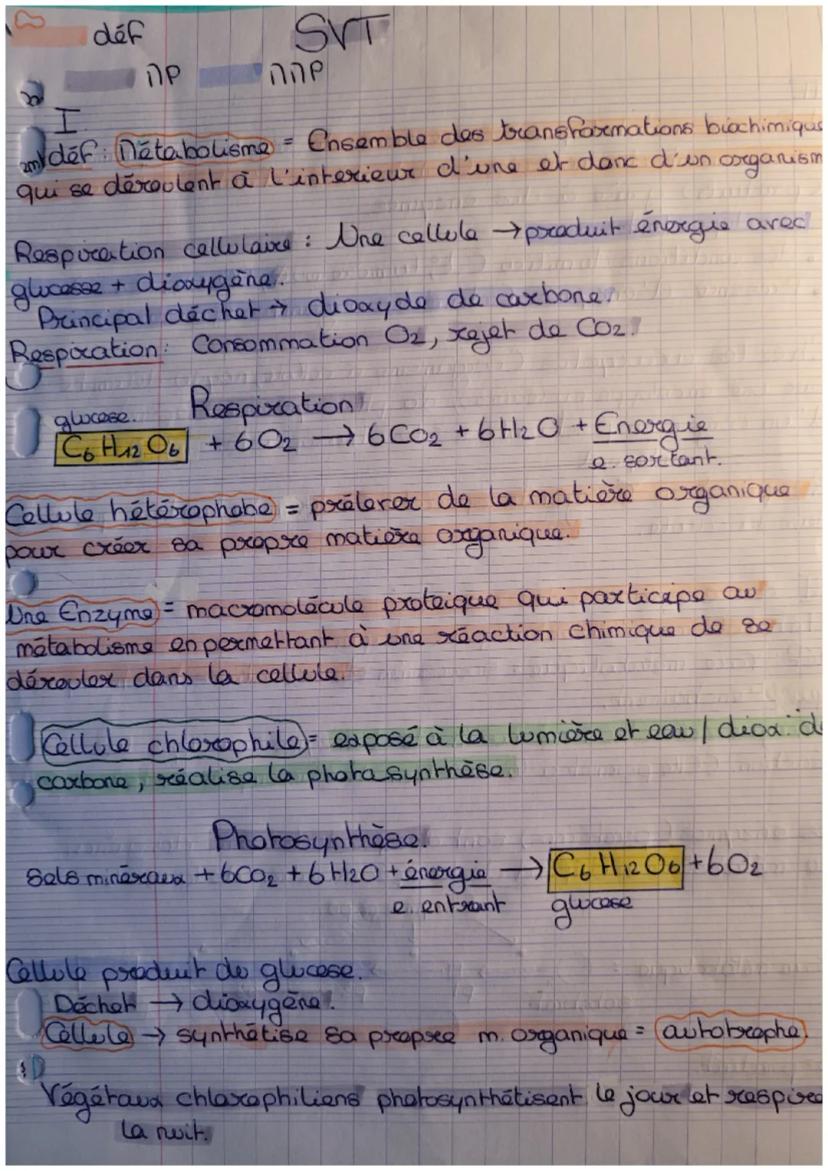 déf SVT
I
déf : Métabolisme = Ensemble des transformations biochimique
qui se déroulent à l'interieur d'une et donc d'un organism
Respiration cellulaire : Une cellule → produit énergie avec
glucose + dioxygène.
Principal déchet → dioxyde de carbone.
Respiration : Consommation O2, rejet de CO2.
glucose. Respiration
C6 H12 O6 + 6O2 → 6CO2 + 6H2O + Energie
e. sortant.
Cellule hétérophobe = prélever de la matière organique
pour créer sa propre matière organique.
Une Enzyme = macromolécule proteique qui participe au
métabolisme en permettant à une réaction chimique de se
dérouler dans la cellule.
Cellule chlorophile = exposé à la lumière et eau / diox. d
carbone, réalise la photosynthèse.
Photosynthèse.
Sels minéraux + 6CO2 + 6H2O + énergie → C6 H12 O6 + 6O2
e. entrant glucose
Cellule produit do glucose.
Déchet → dioxygène.
Cellule → synthétise sa propre m. organique = autotrophe.
Végétaux chlorophiliens photosynthétisent le jour et respire
la nuit.